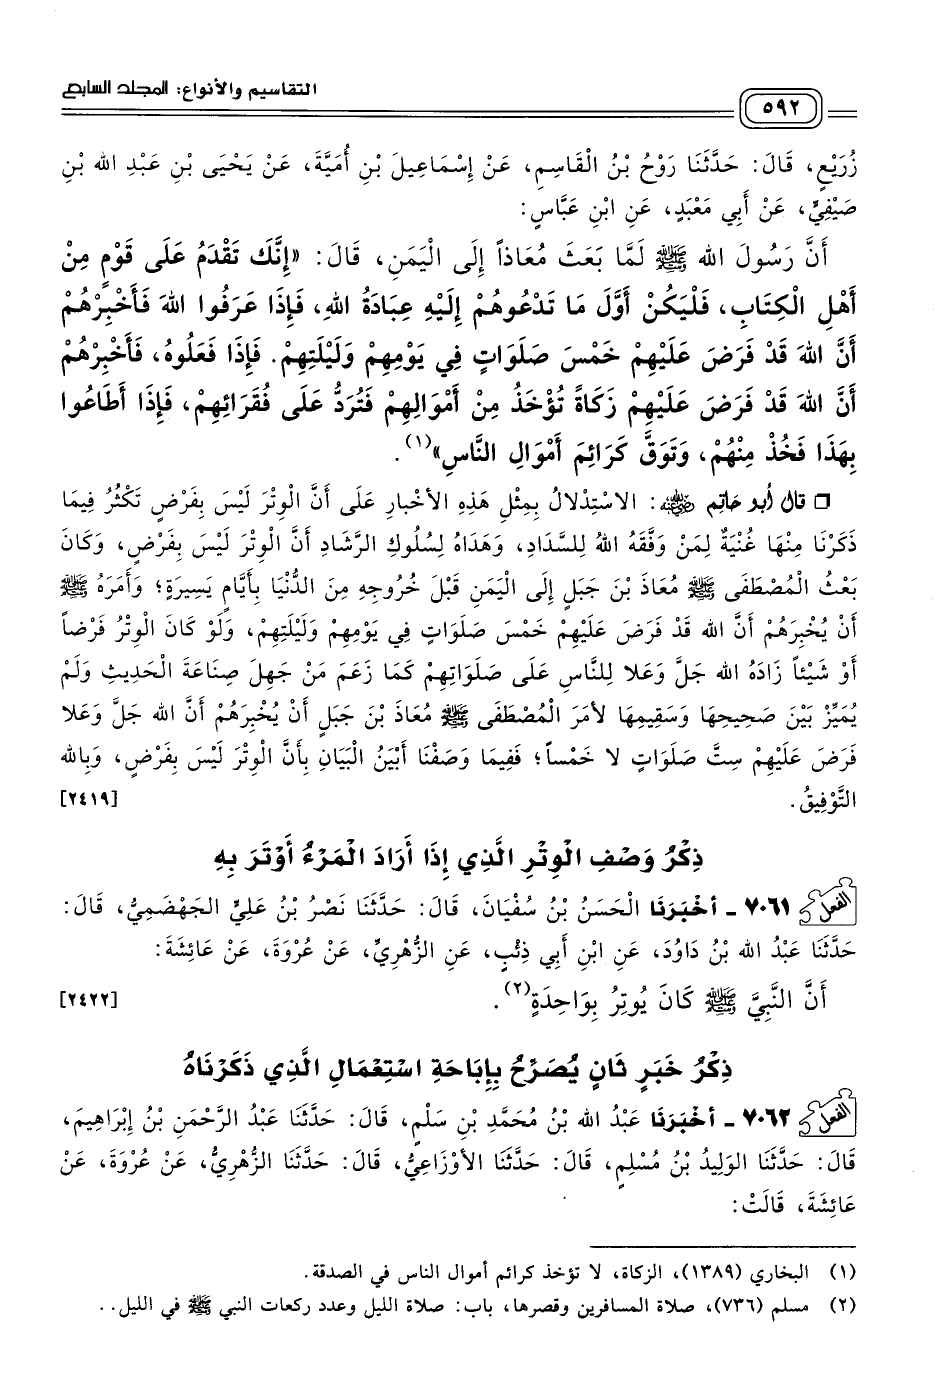 التقاسيم والأنواع: المجلد السابع
٥٩٢
زُرَيْعٍ، قَالَ: حَدَّثَنَا رَوْحُ بْنُ الْقَاسِمِ، عَنْ إِسْمَاعِيلَ بْنِ أُمَيَّةَ، عَنْ يَحْيَى بْنِ عَبْدِ الله بْنِ
صَيْفِيٍّ، عَنْ أَبِي مَعْبَدٍ، عَنِ ابْنِ عَبَّاسٍ:
أَنَّ رَسُولَ الله ﷺ لَمَّا بَعَثَ مُعَاذاً إِلَى الْيَمَنِ، قَالَ: «إِنَّكَ تَقْدَمُ عَلَى قَوْمٍ مِنْ
أَهْلِ الْكِتَابِ، فَلْيَكُنْ أَوَّلَ مَا تَدْعُوهُمْ إِلَيْهِ عِبَادَةُ اللهِ، فَإِذَا عَرَفُوا اللهَ فَأَخْبِرْهُمْ
أَنَّ اللهَ قَدْ فَرَضَ عَلَيْهِمْ خَمْسَ صَلَوَاتٍ فِي يَوْمِهِمْ وَلَيْلَتِهِمْ. فَإِذَا فَعَلُوهُ، فَأَخْبِرْهُمْ
أَنَّ اللهَ قَدْ فَرَضَ عَلَيْهِمْ زَكَاةً تُؤْخَذُ مِنْ أَمْوَالِهِمْ فَتُرَدُّ عَلَى فُقَرَائِهِمْ، فَإِذَا أَطَاعُوا
بِهَذَا فَخُذْ مِنْهُمْ، وَتَوَقَّ كَرَائِمَ أَمْوَالِ النَّاسِ»(١).
❒ قال أبو حاتم ﵁: الاسْتِدْلالُ بِمِثْلِ هَذِهِ الأخْبارِ عَلَى أَنَّ الْوِتْرَ لَيْسَ بِفَرْضٍ تَكْثُرُ فِيمَا
ذَكَرْنَا مِنْهَا غُنْيَةٌ لِمَنْ وَفَّقَهُ اللهُ لِلسَّدَادِ، وَهَدَاهُ لِسُلُوكِ الرَّشَادِ أَنَّ الْوِتْرَ لَيْسَ بِفَرْضٍ، وَكَانَ
بَعْثُ الْمُصْطَفَى ﷺ مُعَاذَ بْنَ جَبَلٍ إِلَى الْيَمَنِ قَبْلَ خُرُوجِهِ مِنَ الدُّنْيَا بِأَيَّامٍ يَسِيرَةٍ؛ وَأَمَرَهُ ﷺ
أَنْ يُخْبِرَهُمْ أَنَّ الله قَدْ فَرَضَ عَلَيْهِمْ خَمْسَ صَلَوَاتٍ فِي يَوْمِهِمْ وَلَيْلَتِهِمْ، وَلَوْ كَانَ الْوِتْرُ فَرْضاً
أَوْ شَيْئاً زَادَهُ الله جَلَّ وَعَلا لِلنَّاسِ عَلَى صَلَوَاتِهِمْ كَمَا زَعَمَ مَنْ جَهِلَ صِنَاعَةَ الْحَدِيثِ وَلَمْ
يُمَيِّزْ بَيْنَ صَحِيحِهَا وَسَقِيمِهَا لأمَرَ الْمُصْطَفَى ﷺ مُعَاذَ بْنَ جَبَلٍ أَنْ يُخْبِرَهُمْ أَنَّ الله جَلَّ وَعَلا
فَرَضَ عَلَيْهِمْ سِتَّ صَلَوَاتٍ لا خَمْساً؛ فَفِيمَا وَصَفْنَا أَبْيَنُ الْبَيَانِ بِأَنَّ الْوِتْرَ لَيْسَ بِفَرْضٍ، وَبِالله
التَّوْفِيقُ. [٢٤١٩]
ذِكْرُ وَصْفِ الْوِتْرِ الَّذِي إِذَا أَرَادَ الْمَرْءُ أَوْتَرَ بِهِ
الفعل ٧٠٦١ - أَخْبَرَنَا الْحَسَنُ بْنُ سُفْيَانَ، قَالَ: حَدَّثَنَا نَصْرُ بْنُ عَلِيٍّ الجَهْضَمِيُّ، قَالَ:
حَدَّثَنَا عَبْدُ الله بْنُ دَاوُدَ، عَنِ ابْنِ أَبِي ذِئْبٍ، عَنِ الزُّهْرِيِّ، عَنْ عُرْوَةَ، عَنْ عَائِشَةَ:
أَنَّ النَّبِيَّ ﷺ كَانَ يُوتِرُ بِوَاحِدَةٍ(٢). [٢٤٢٢]
ذِكْرُ خَبَرٍ ثَانٍ يُصَرِّحُ بِإِبَاحَةِ اسْتِعْمَالِ الَّذِي ذَكَرْنَاهُ
الفعل ٧٠٦٢ - أَخْبَرَنَا عَبْدُ الله بْنُ مُحَمَّدِ بْنِ سَلْمٍ، قَالَ: حَدَّثَنَا عَبْدُ الرَّحْمَنِ بْنُ إِبْرَاهِيمَ،
قَالَ: حَدَّثَنَا الْوَلِيدُ بْنُ مُسْلِمٍ، قَالَ: حَدَّثَنَا الأَوْزَاعِيُّ، قَالَ: حَدَّثَنَا الزُّهْرِيُّ، عَنْ عُرْوَةَ، عَنْ
عَائِشَةَ، قَالَتْ:
(١) البخاري (١٣٨٩)، الزكاة، لا تؤخذ كرائم أموال الناس في الصدقة.
(٢) مسلم (٧٣٦)، صلاة المسافرين وقصرها، باب: صلاة الليل وعدد ركعات النبي ﷺ في الليل..